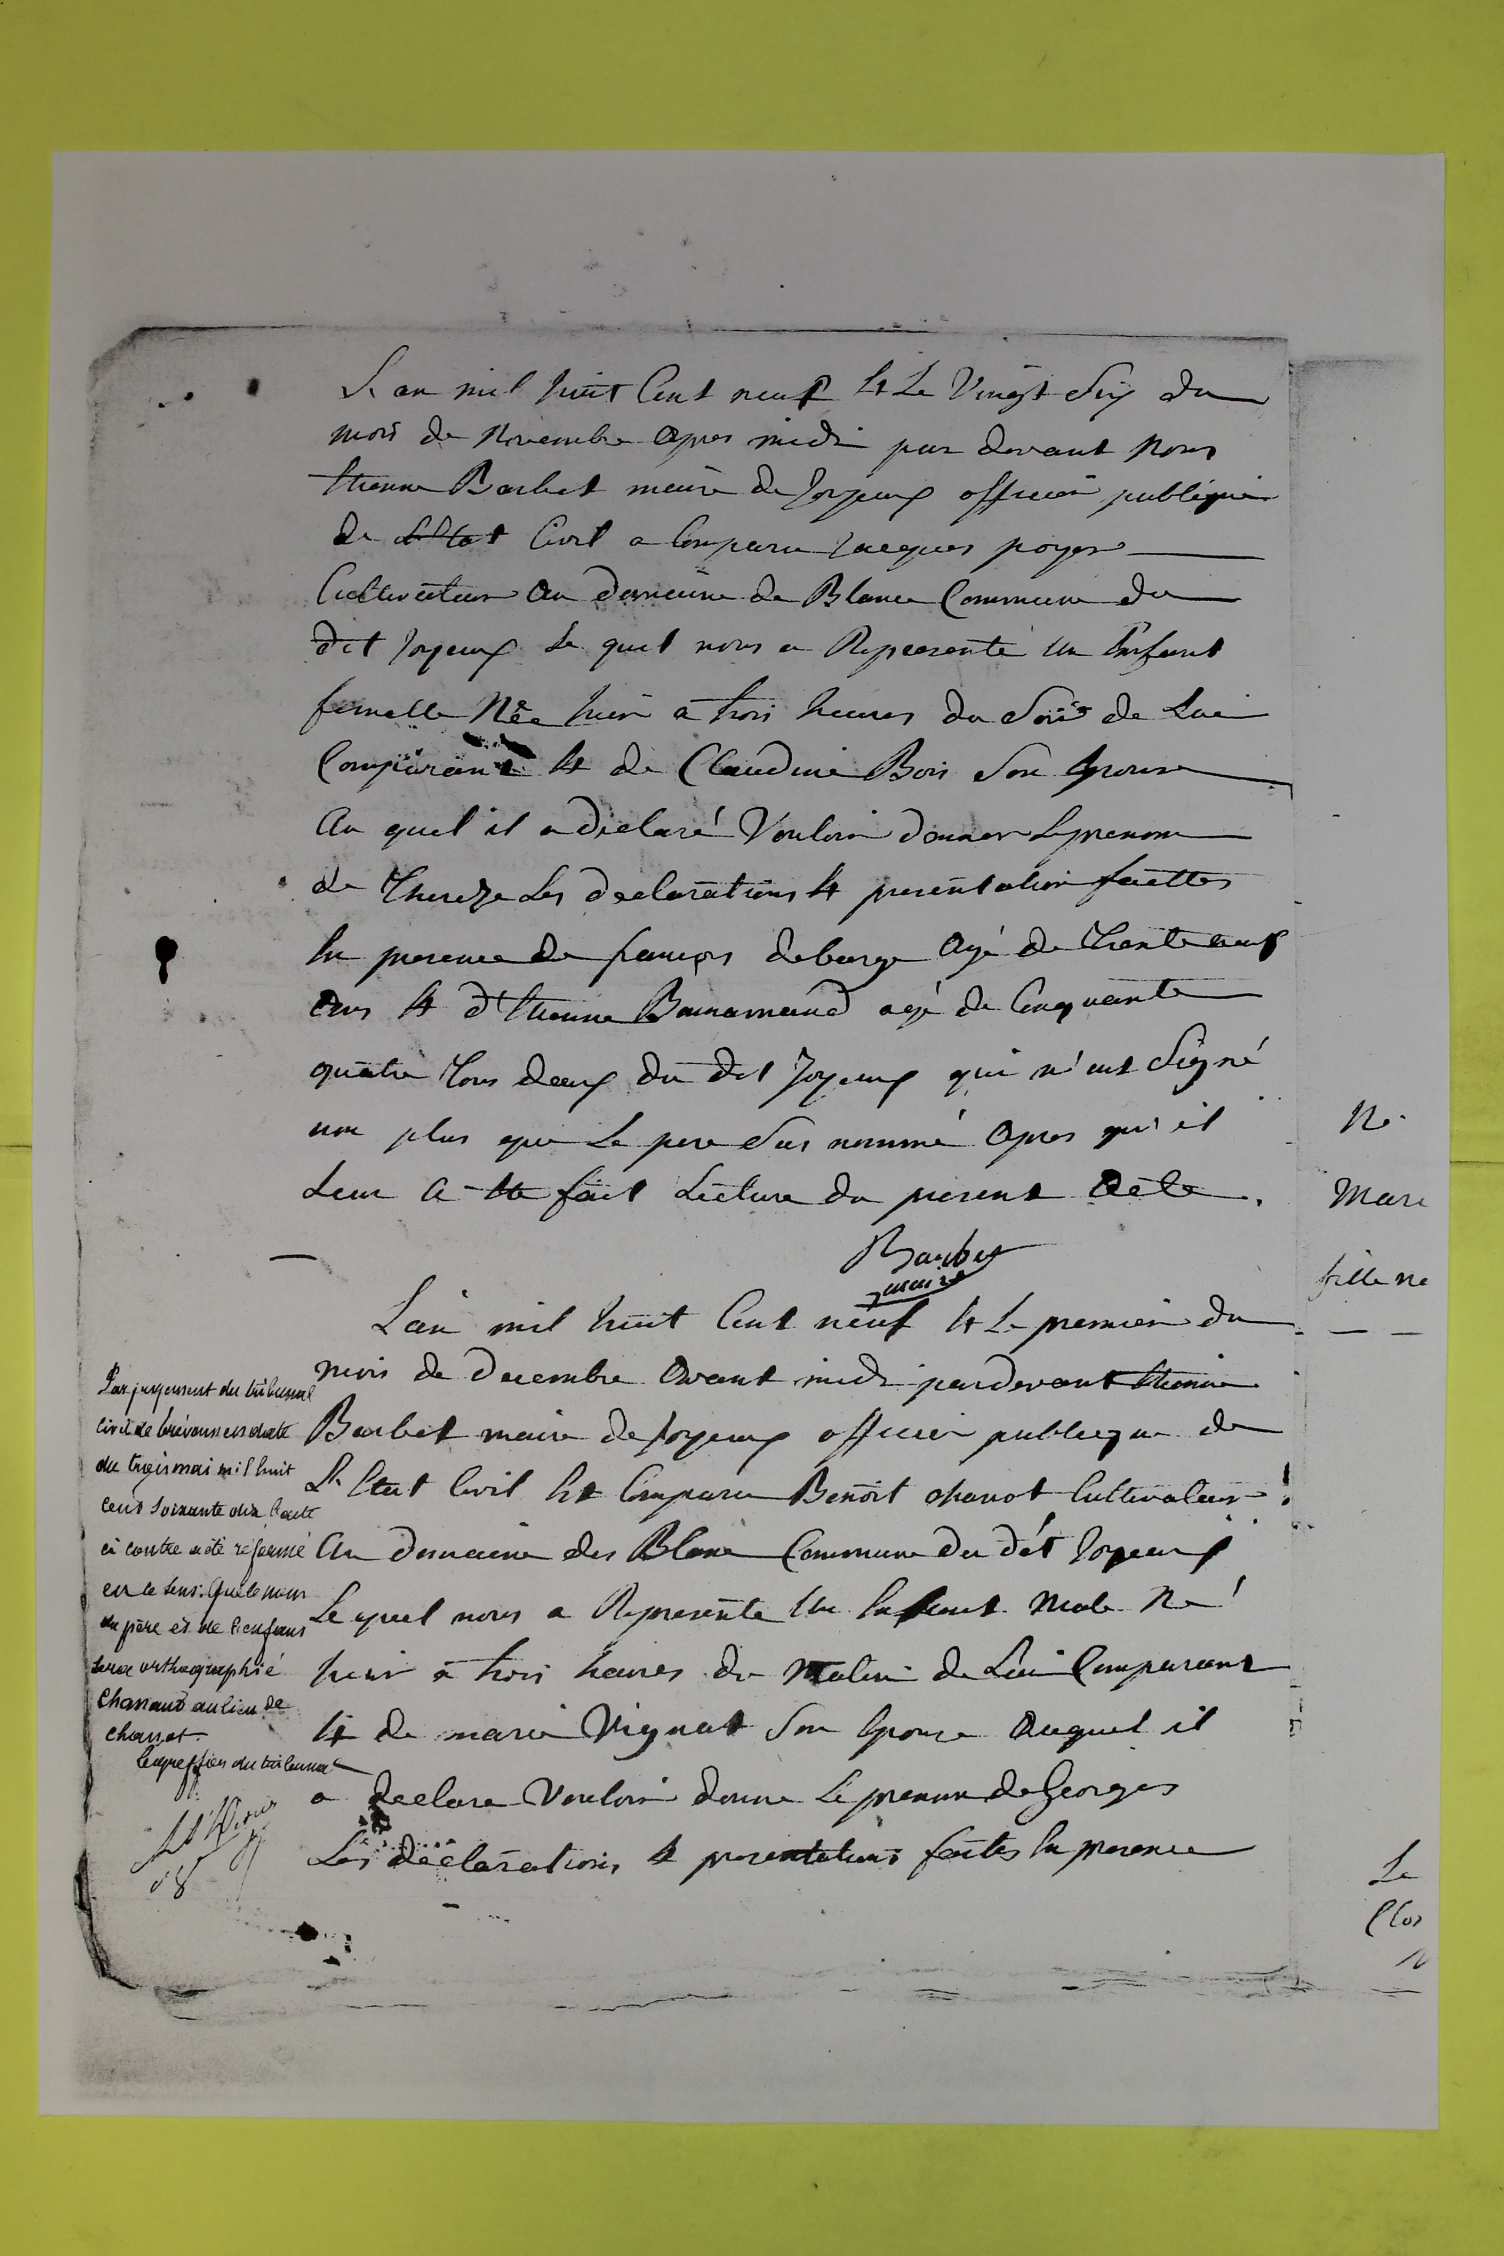 L'an mil huit Cent neuf Et Le Vingt Six du
mois de Novembre apres midi par devant Nous
Etienne Barbet maire de Joyeux officier publique
de L'Etat Civil a Comparu Jacques poyet
Cultivateur au domaine de Blanc Commune du
dit Joyeux Le quel nous a Representé un Enfant
femelle Née hier à trois heures du Soir de Lui
Comparant Et de Claudine Bois Son Epouse
Au quel il a déclaré Vouloir donner Le prenom
de Thereze Les declarations Et presentation faittes
En presence de françois deberge Agé de Trente neuf
ans Et d'Etienne agé de Cinquante
quatre Tous deux du dit Joyeux qui n'ont Signé
non plus que Le pere Sus nommé Apres qu'il
Leur A Eté fait Lecture du present Acte.
Barbet
maire
L'an mil huit Cent neuf Et Le premier du
mois de decembre Avant midi pardevant Etienne
Barbet maire de Joyeux officier publique de
L'Etat Civil Est Comparu Benoit chanot Cultivateur
Au domaine des Blanc Commune du dit Joyeux
Le quel nous a Representé Un Enfant Male Né
hier à trois heures du Matin de Lui Comparant
Et de marie Vignat Son Epouse Auquel il
a declare Vouloir donne Le prenom de Georges
Les déclarations Et presentations faites En presence
Par jugement du tribunal
civil de Trévoux en date
du trois mai mil huit
cent soixante dix l'acte
ci contre a été réformé
en ce sens que le nom
du père et de l'enfant
sera orthographié
Chanaud au lieu de
chanot.
Le greffier du tribunal
Né
Marie
fille ne
Le
Clo